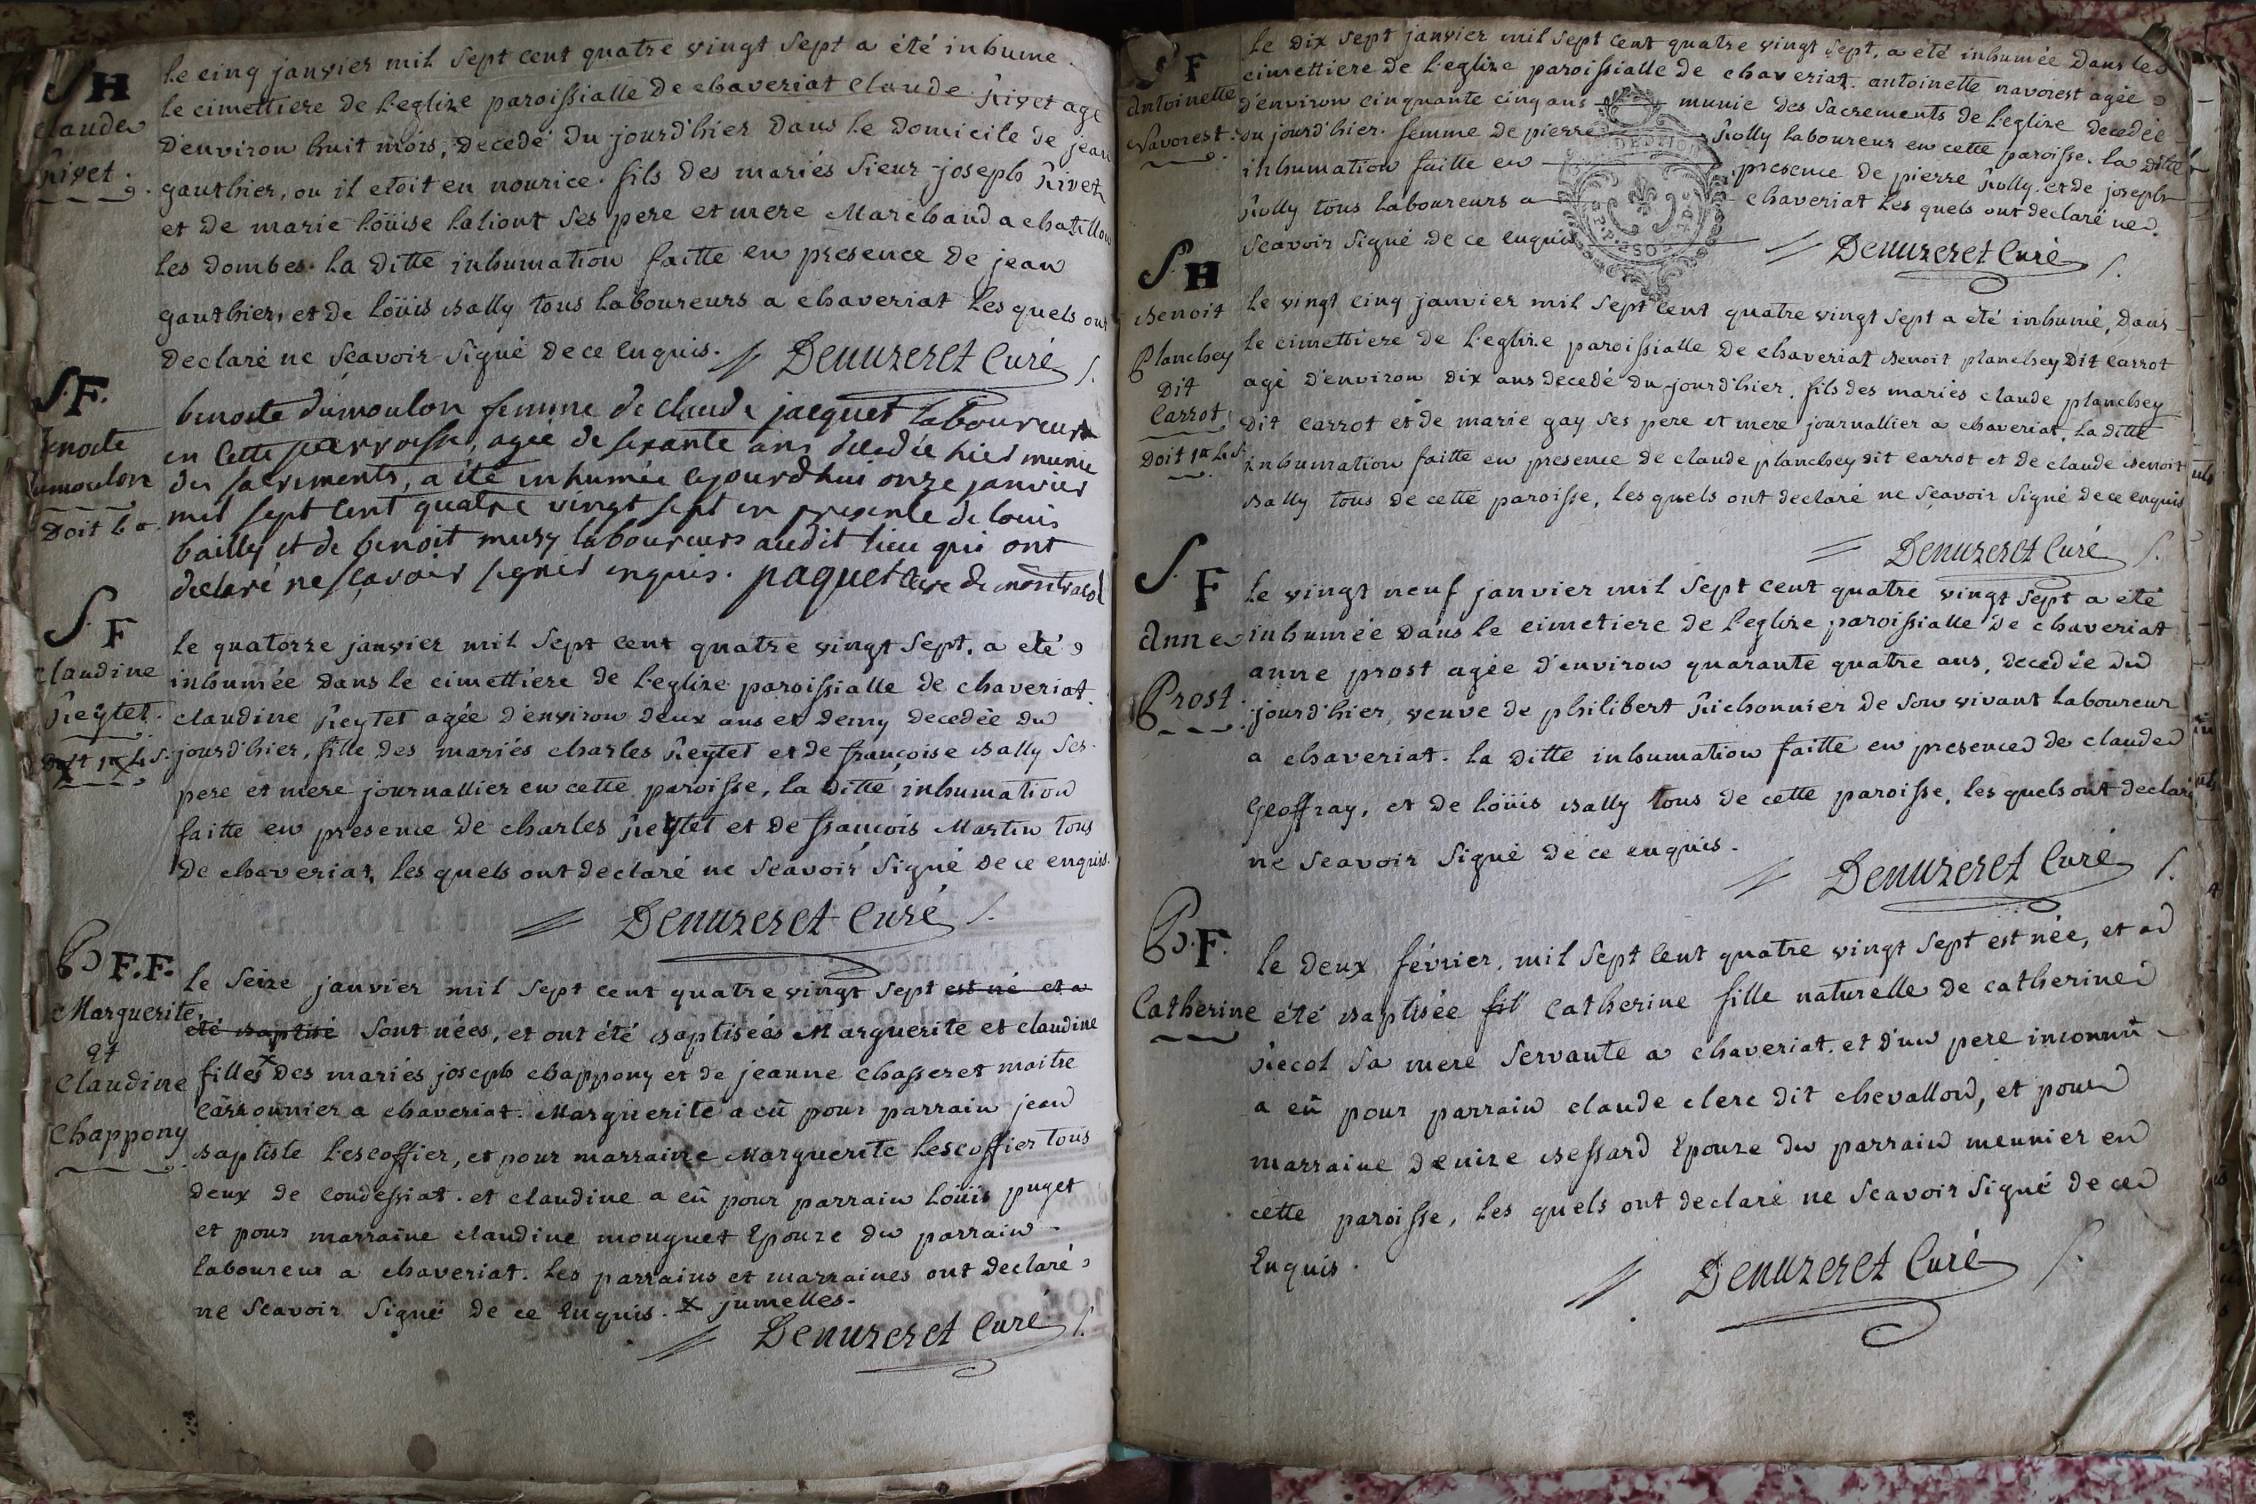 S H
Claude
Rivet.
le cinq janvier mil sept cent quatre vingt sept a été inhume
le cimettiere de l'eglize paroissialle de chaveriat Claude Rivet agé
d'environ huit mois, decedé du jourd'hier dans le domicile de jean
gauthier, ou il etoit en nourice. fils des mariés sieur joseph Rivet
et de marie loüise laliont ses pere et mere Marchand a chatillon
les dombes. la ditte inhumation faitte en presence de jean
gauthier, et de loüis Bally tous laboureurs a chaveriat les quels ont
declaré ne sçavoir signé de ce enquis. // Denuzeret Curé
S.F.
benoite
dumoulon
Doit 6 s.
benoite dumoulon femme de claude jacquet laboureur
en cette parroisse, agée de soixante ans decedée hier munie
des sacrements, a été inhumée cejourdhui onze janvier
mil sept cent quatre vingt sept en presence de louis
bailly et de benoit mury laboureurs audit lieu qui ont
declaré ne sçavoir signer enquis. paquet Curé de montracol
S. F
Claudine
Reytet.
le quatorze janvier mil sept cent quatre vingt sept. a eté
inhumée dans le cimettiere de l'eglize paroissialle de chaveriat.
claudine Reytet agée d'environ deux ans et demy decedée du
jourd'hier, fille des mariés charles Reytet et de françoise Bally ses
pere et mere journallier en cette paroisse, la ditte inhumation
faitte en presence de charles Reytet et de françois Martin tous
de chaveriat, les quels ont declaré ne sçavoir signé de ce enquis.
// Denuzeret Curé
B F.F.
Marguerite
Et
Claudine
Chappony
le seize janvier mil sept cent quatre vingt sept est né et a
eté Baptisé sont nées, et ont été Baptiseés Marguerite et claudine
filles x des mariés joseph chappony et de jeanne chasseret maitre
carronnier a chaveriat. Marguerite a eü pour parrain jean
Baptiste l'escoffier, et pour marraine Marguerite lescoffier tous
deux de condessiat. et claudine a eü pour parrain loüis puget
et pour marraine claudine mouguet Epouze du parrain
laboureur a chaveriat. les parrains et marraines ont declaré
ne sçavoir signé de ce enquis. x jumelles.
// Denuzeret Curé
S F
Antoinette
Navorest.
le dix sept janvier mil sept cent quatre vingt sept, a été inhumée dans le
cimettiere de l'eglize paroissialle de chaveriat. antoinette navorest agée
d'environ cinquante cinq ans munie des sacrements de l'eglize decedée
du jourd'hier. femme de pierre Rolly laboureur en cette paroisse. la ditte
inhumation faitte en presence de pierre Rolly. et de joseph
Rolly tous laboureurs a chaveriat les quels ont declaré ne
sçavoir signé de ce enquis // Denuzeret Curé
S. H
Benoit
Planchey
Dit
Carrot
Doit 1 lt 4 s.
le vingt cinq janvier mil sept cent quatre vingt sept a eté inhumé, dans
le cimettiere de l'eglize paroissialle de chaveriat Benoit planchey Dit Carrot
agé d'environ dix ans decedé du jourd'hier. fils des mariés claude planchey
Dit carrot et de marie gay ses pere et mere journallier a chaveriat. la ditte
inhumation faitte en presence de claude planchey dit carrot et de claude Benoit
Bally tous de cette paroisse, les quels ont declaré ne sçavoir signé de ce enquis
// Denuzeret Curé
S. F
Anne
Prost.
le vingt neuf janvier mil sept cent quatre vingt sept a eté
inhumée dans le cimetiere de l'eglize paroissialle de chaveriat
anne prost agée d'environ quarante quatre ans, decedée du
jourd'hier, veuve de philibert Richonnier de son vivant laboureur
a chaveriat. la ditte inhumation faitte en presence de claude
Geoffray, et de loüis Bally tous de cette paroisse, les quels ont declaré
ne sçavoir signé de ce enquis.
// Denuzeret Curé
B.F.
Catherine
le deux février, mil sept cent quatre vingt sept est née, et a
été Baptisée fil Catherine fille naturelle de catherine
Recol sa mere servante a chaveriat. et d'un pere inconnü
a eü pour parrain claude clerc dit chevallon, et pour
marraine denize Bessard Epouze du parrain meunier en
cette paroisse, les quels ont declaré ne sçavoir signé de ce
Enquis.
// Denuzeret Curé